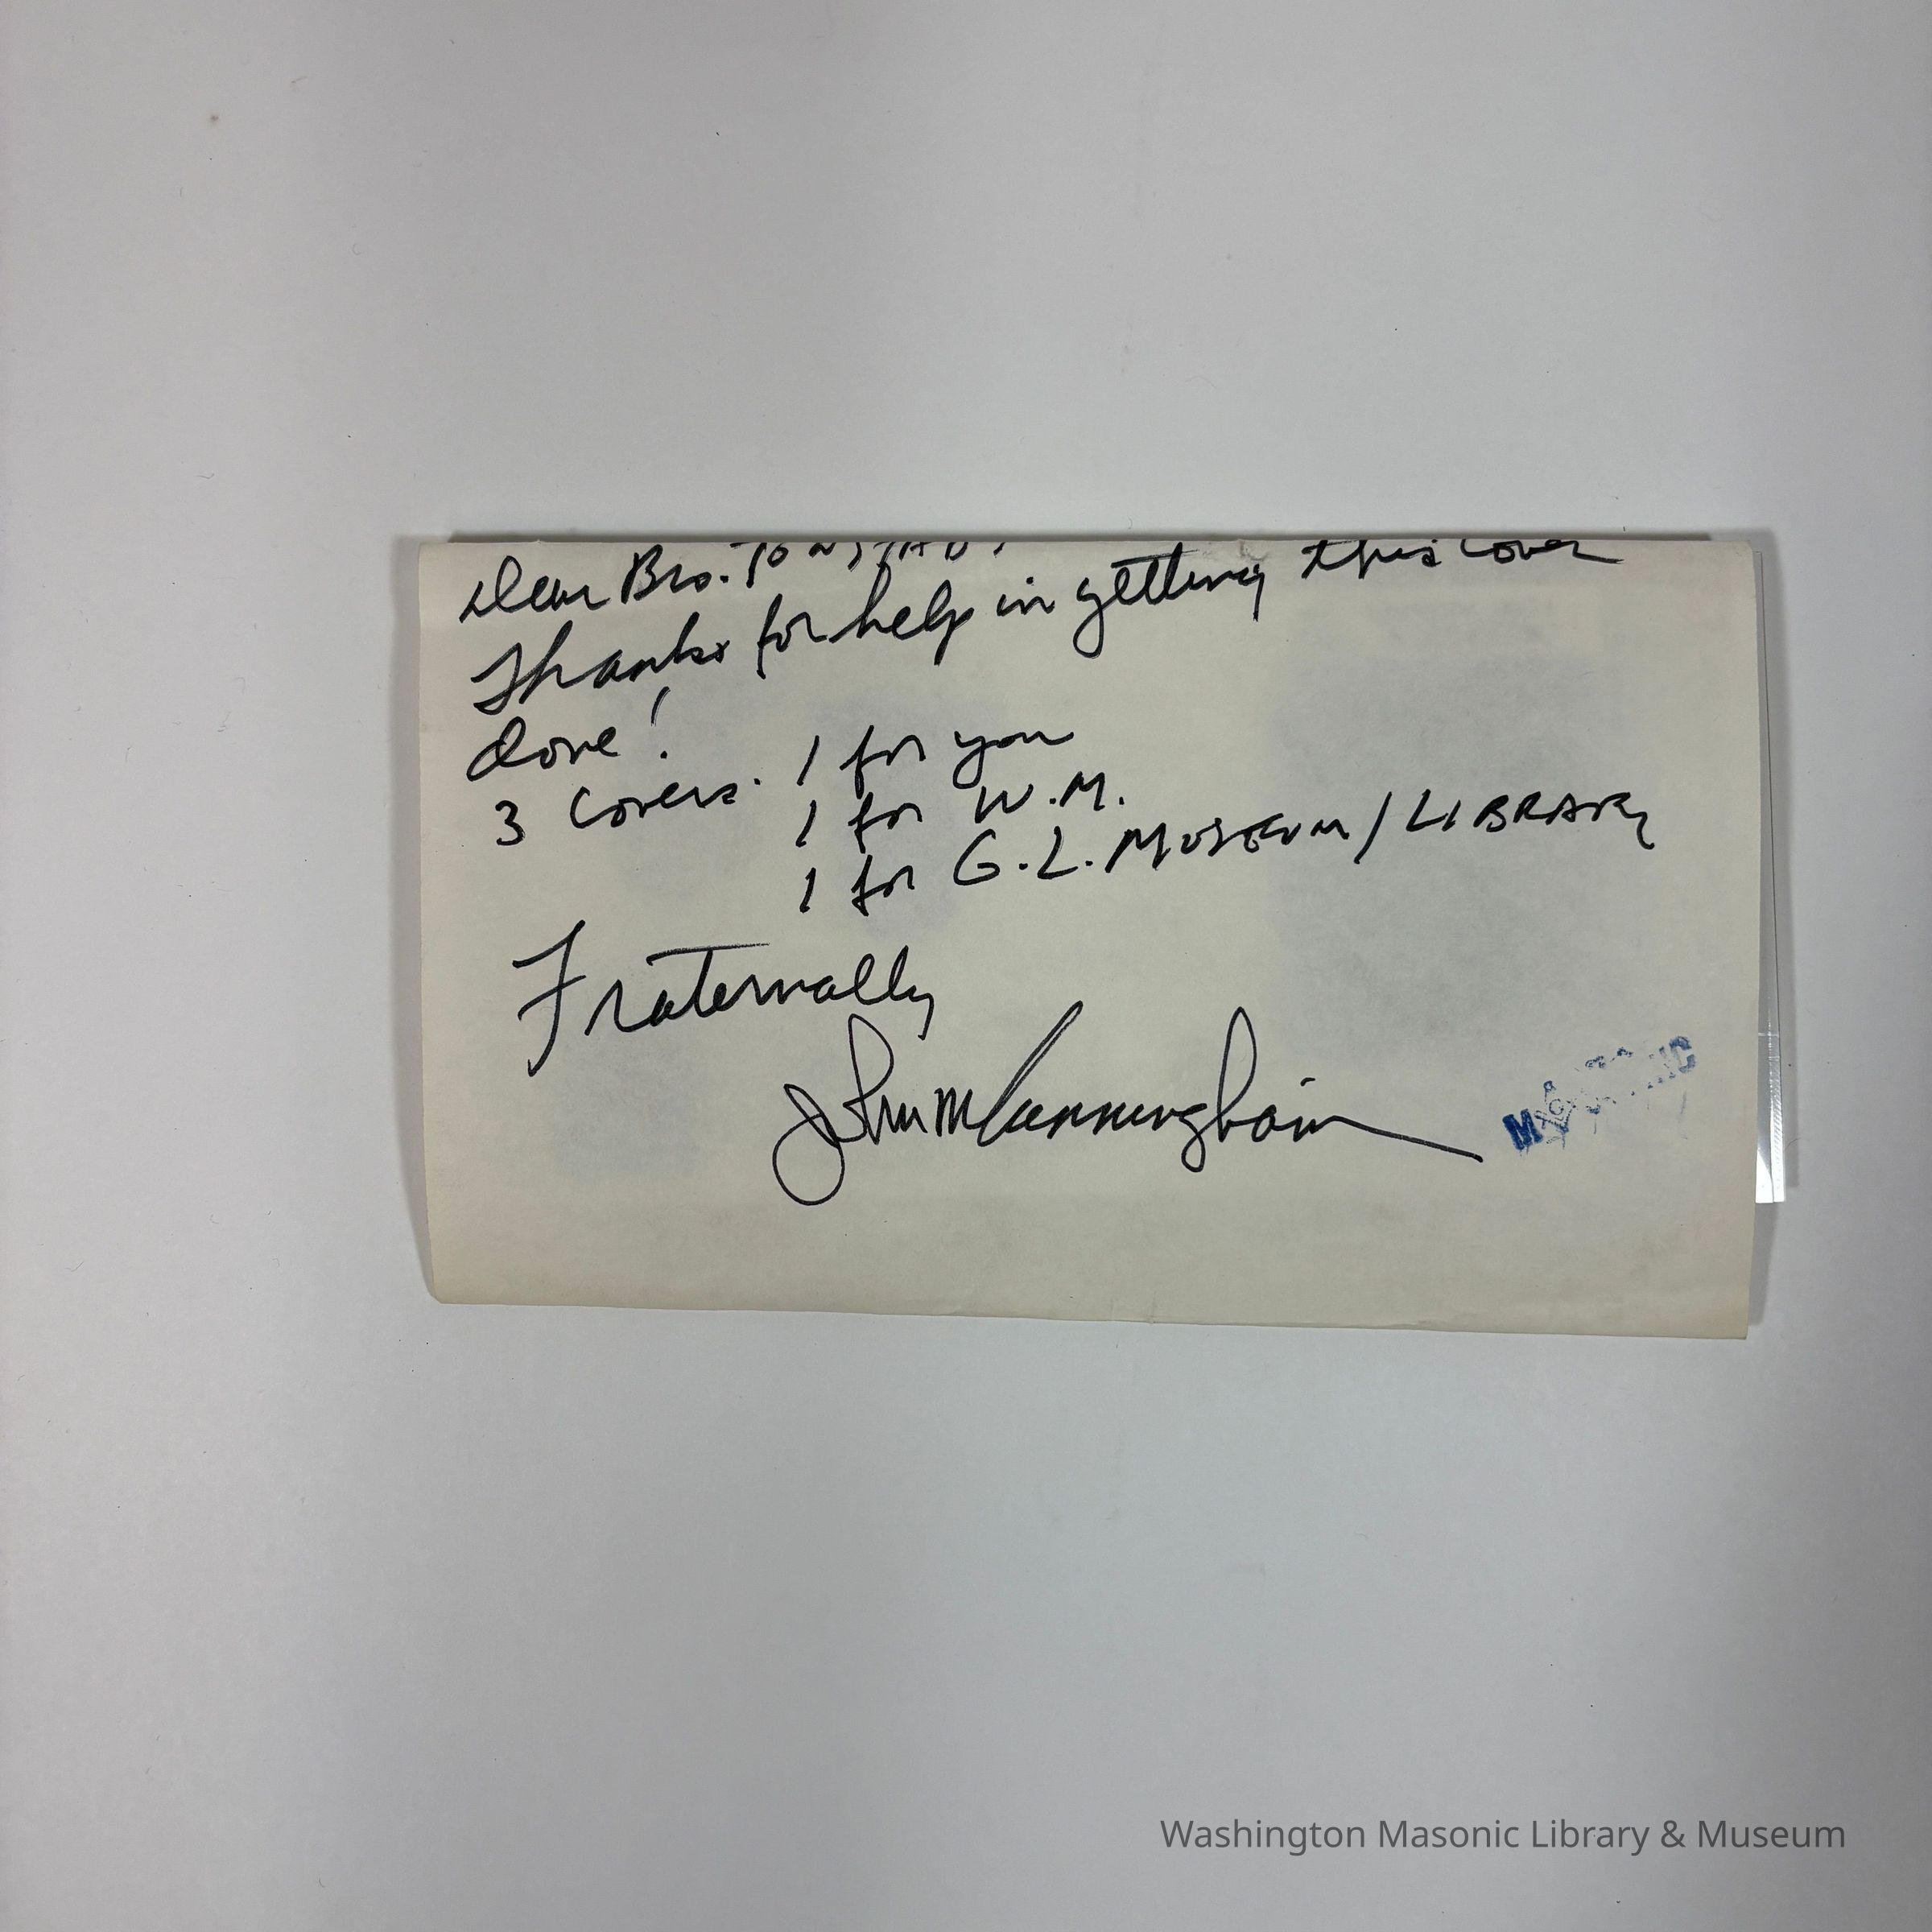 Dear Bro.
Thanks for help in getting this cover
done!
3 Covers. 1 for you
1 for W.M.
1 for G.L. MUSEUM/LIBRARY
Fraternally
John M Cunningham
Washington Masonic Library & Museum